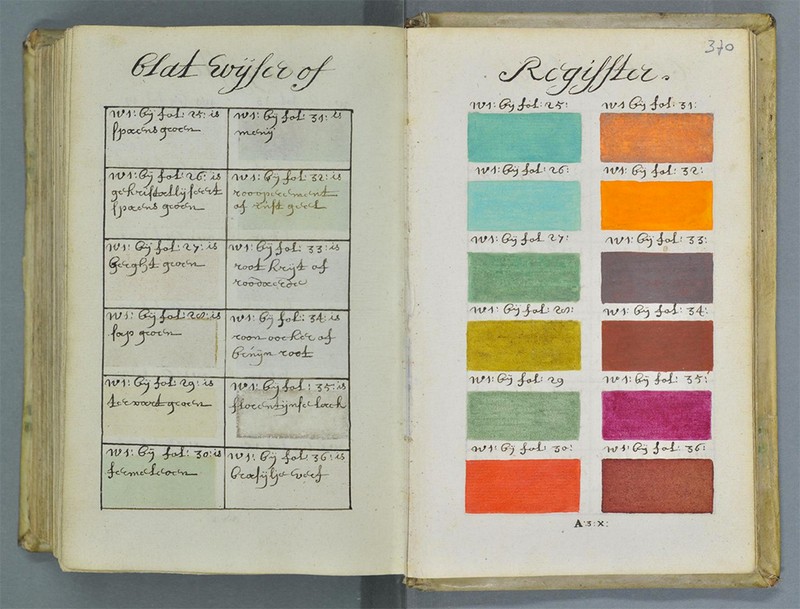 Blat wÿser of
w1: bÿ fol: 25: is
spaens groen
w1: bÿ fol: 31: is
menÿ
w1: bÿ fol: 26: is
gekristallÿseert
spaens groen
w1: bÿ fol: 32: is
rooopriement
of rust geel
w1: bÿ fol: 27: is
berght groen
w1: bÿ fol: 33: is
root krÿt of
w1: bÿ fol: 28: is
sap groen
w1: bÿ fol: 34: is
roon oocker of
bruÿn root
w1: bÿ fol: 29: is
groen
w1: bÿ fol: 35: is
florentÿnse lack
w1: bÿ fol: 30: is
w1: bÿ fol: 36: is
verf
Regisster.
370
w1: bÿ fol: 25:
w1 bÿ fol: 31:
w1: bÿ fol: 26:
w1: bÿ fol: 32:
w1: bÿ fol: 27:
w1: bÿ fol: 33:
w1: bÿ fol: 28:
w1: bÿ fol: 34:
w1: bÿ fol: 29
w1: bÿ fol: 35:
w1: bÿ fol: 30:
w1: bÿ fol: 36:
A:3:X: